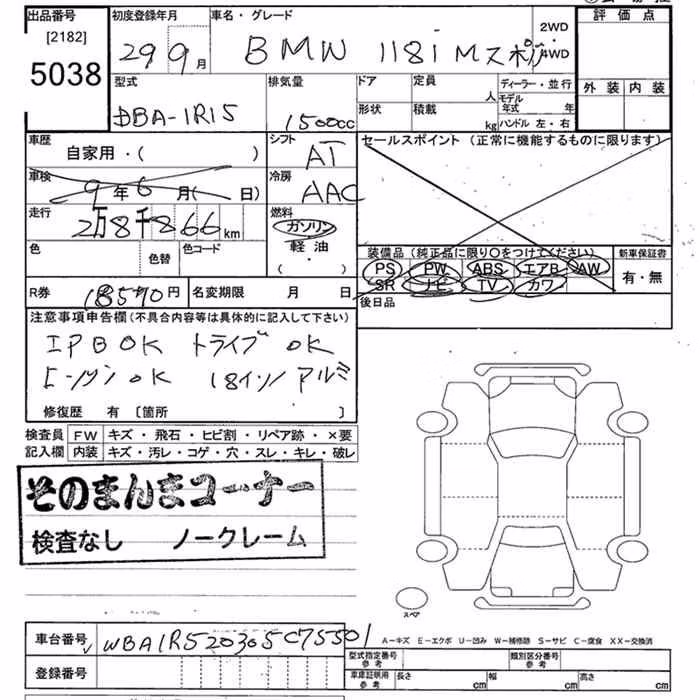 出品番号 初度登録年月 車名・グレード 評価点
[2182]
5038
29 9月 BMW 118i Mスポ 2WD・4WD
型式 排気量 ドア 定員 人 ディーラー・並行 外装 内装
DBA-1R15 1500cc 形状 積載 kg モデル年式 年 ハンドル 左・右
車歴 シフト セールスポイント (正常に機能するものに限ります)
自家用・( ) AT
車検 冷房
9年6月( 日) AAC
走行 燃料
2万8千866km ガソリン
色 色替 色コード 軽油 ・( ) 装備品(純正品に限り○をつけてください) 新車保証書
PS PW ABS エアB AW 有・無
SR ナビ TV カワ
R券 18570円 名変期限 月 日 後日品
注意事項申告欄(不具合内容等は具体的に記入して下さい)
エアBOK ドライブOK
エンジンOK 18インアルミ
修復歴 有 〔箇所 〕
検査員 FW キズ・飛石・ヒビ割・リペア跡・×要
記入欄 内装 キズ・汚レ・コゲ・穴・スレ・キレ・破レ
そのまんまコーナー
検査なし ノークレーム
スペア
車台番号 WBA1R520305C75501 A−キズ E−エクボ U−凹み W−補修跡 S−サビ C−腐食 XX−交換済
型式指定番号 参考 類別区分番号 参考
登録番号 車庫証明用 参考 長さ cm 幅 cm 高さ cm